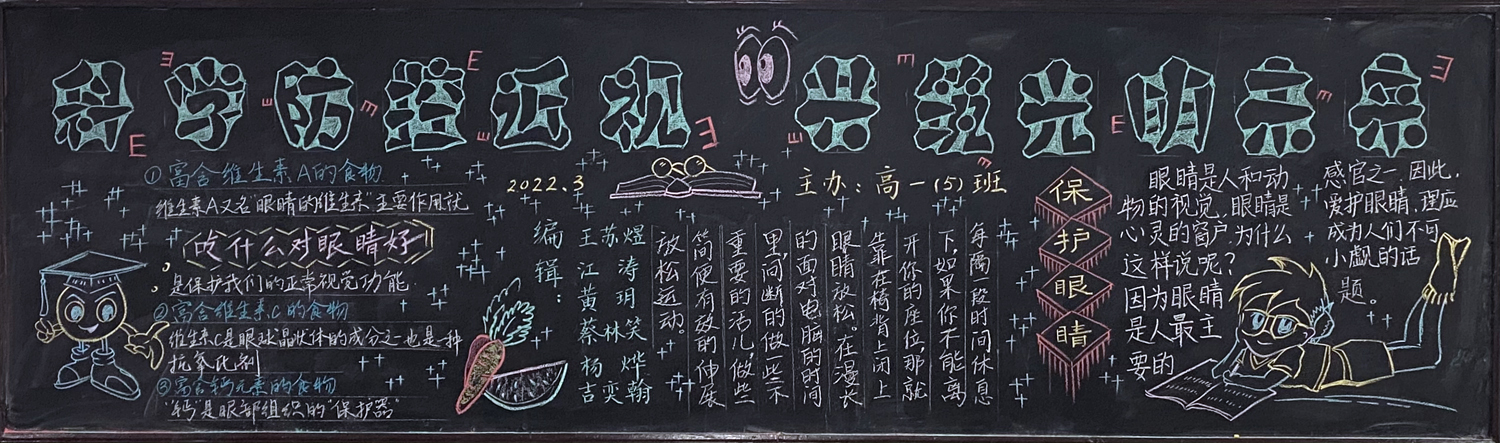 科学防控近视 共筑光明未来
①富含维生素A的食物
维生素A又名"眼睛的维生素"主要作用就
吃什么对眼睛好
是保护我们的正常视觉功能.
②富含维生素C的食物
维生素C是眼球晶状体的成分之一也是一种
抗氧化剂
③富含钙元素的食物
"钙"是眼部组织的"保护器"
2022.3
主办:高一(5)班
编辑:
王苏煜
江涛
黄玥
蔡林笑
杨烨
吉奕翰
每隔一段时间休息
下,如果你不能离
开你的座位那就
靠在椅背上闭上
眼睛放松。在漫长
的面对电脑的时间
里,间断的做一些不
重要的活儿,做些
简便有效的伸展
放松运动。
保护眼睛
眼睛是人和动
物的视觉,眼睛是
心灵的窗户,为什么
这样说呢?
因为眼睛
是人最主
要的
感官之一,因此,
爱护眼睛,理应
成为人们不可
小觑的话
题。
E
E
E
E
E
E
E
E
E
E
E
E
E